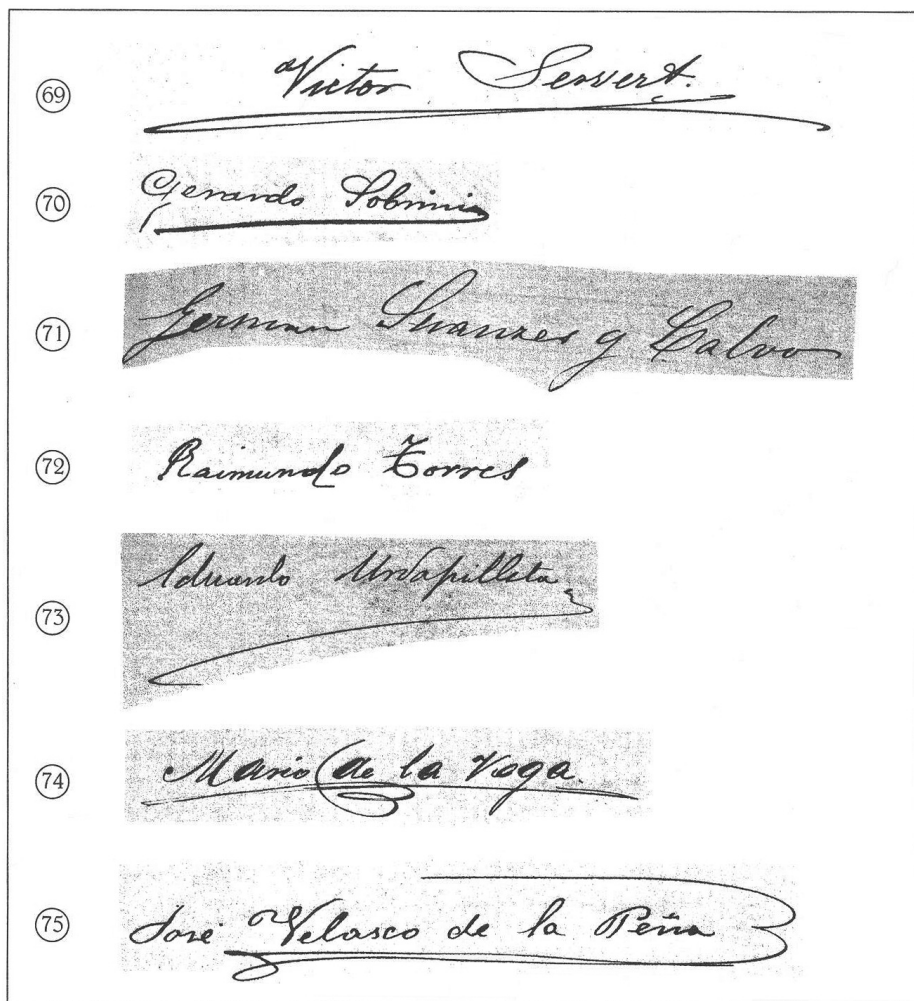 69 Victor Servert.
70 Gerardo Sobrini
71 German Suanzes y Calvo
72 Raimundo Torres
73 Eduardo Urdapilleta
74 Mario de la Vega.
75 José Velasco de la Peña